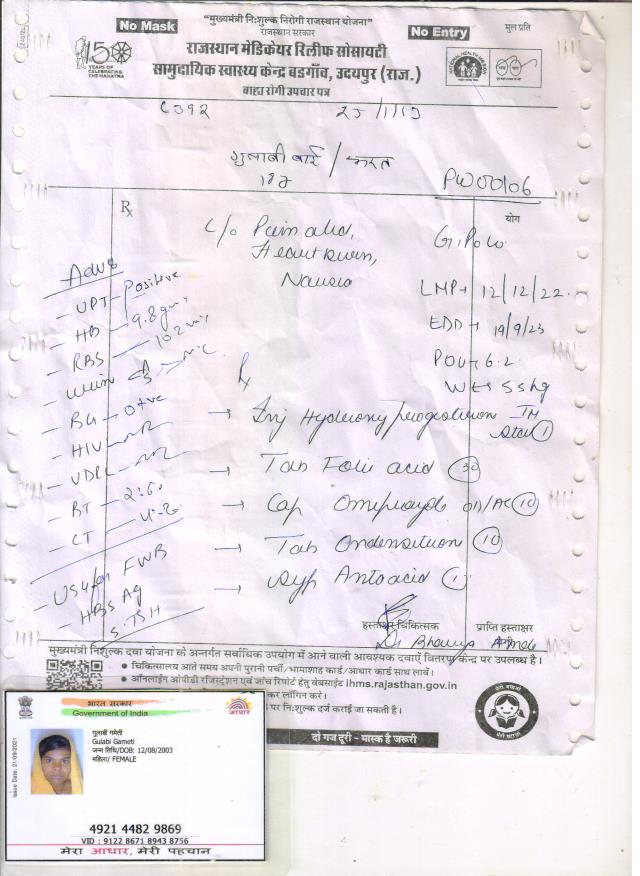 No Mask
"मुख्यमंत्री नि:शुल्क निरोगी राजस्थान योजना"
राजस्थान सरकार
No Entry
मुल प्रति
150
YEARS OF
CELEBRATING
THE MAHATMA
राजस्थान मेडिकेयर रिलीफ सोसायटी
सामुदायिक स्वास्थ्य केन्द्र बडगाँव, उदयपुर (राज.)
बाह्य रोगी उपचार पत्र
गुलाबी बाई / भरत
PW00106
Rx
योग
C/o Pain abd,
Heartburn,
Nausea
G1P0L0
LMP → 12/12/22
EDD → 19/9/23
Adv
- UPT - Positive
- HB - 9.8 gm
- RBS - 102
- Urine
- BG - O+ve
- HIV - NR
- VDRL - NR
- BT
- CT
- USG for FWB
- HBS Ag
- S. TSH
Rx
→ Inj Hydroxyprogesterone IM
Stat 1
→ Tab Folic acid 30
→ Cap Omeprazole OD/AC 10
→ Tab Ondensetron 10
→ Syp Antacid 1
हस्ताक्षर चिकित्सक
प्राप्ति हस्ताक्षर
मुख्यमंत्री निशुल्क दवा योजना के अन्तर्गत सर्वाधिक उपयोग में आने वाली आवश्यक दवाऐं वितरण केन्द्र पर उपलब्ध है।
● चिकित्सालय आते समय अपनी पुरानी पर्ची/भामाशाह कार्ड/आधार कार्ड साथ लावें।
● ऑनलाईन ओपीडी रजिस्ट्रेशन एवं जांच रिपोर्ट हेतु वेबसाईट ihms.rajasthan.gov.in
कर लॉगिन करे।
पर नि:शुल्क दर्ज कराई जा सकती है।
दो गज दूरी - मास्क है जरूरी
भारत सरकार
Government of India
आधार
Issue Date: 21/09/2021
गुलाबी गमेती
Gulabi Gameti
जन्म तिथि/DOB: 12/08/2003
महिला/ FEMALE
4921 4482 9869
VID : 9122 8671 8943 8756
मेरा आधार, मेरी पहचान